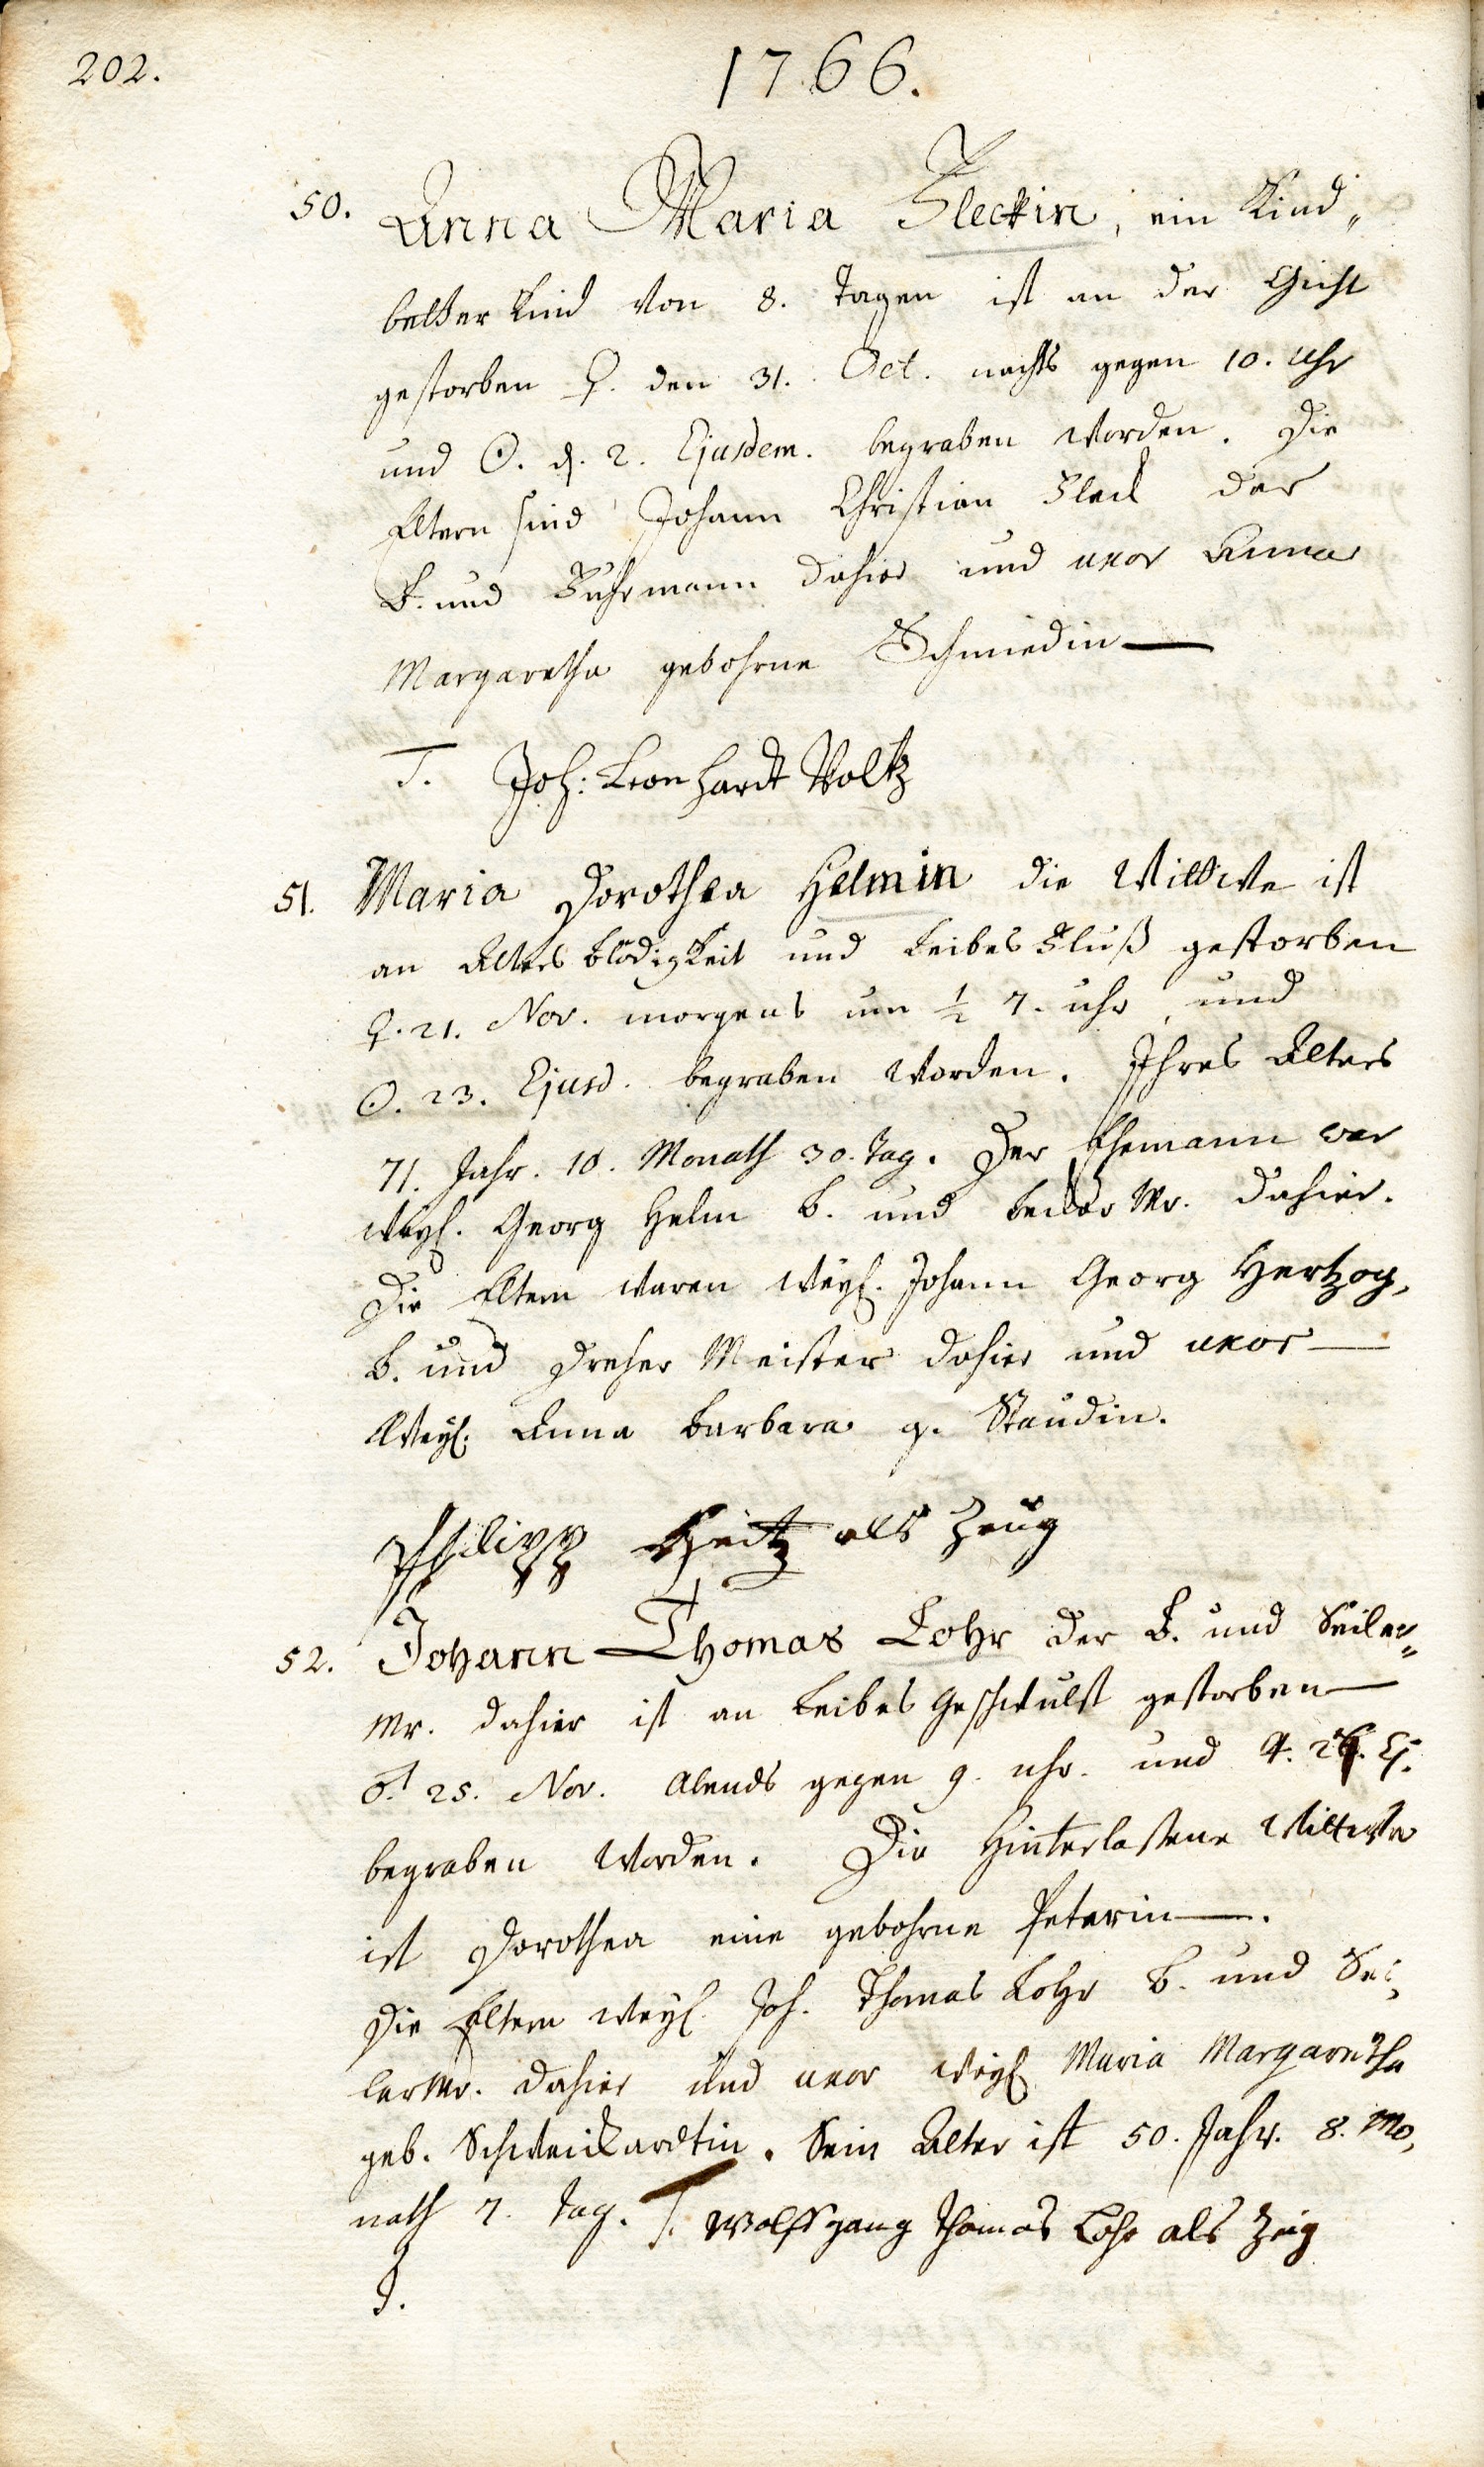 202.
1766.
50. Anna Maria Fleckin, ein Kind„
better Kind von 8. Tagen ist an der Gicht
gestorben ♀. den 31. Oct. nachts gegen 10. Uhr
und ☉. d. 2. Ejusdem. begraben worden. Die
Eltern sind Johann Christian Fleck der
B. und Fuhrmann dahier und uxor Anna
Margaretha gebohrne Schmiedin —
T. Joh: Leonhardt Voltz
51. Maria Dorothea Helmin die Wittwe ist
an Alters Blödigkeit und Leibes Fluß gestorben
♀. 21. Nov. morgens um ½ 7. uhr, und
☉. 23. Ejusd. begraben worden. Ihres Alters
71. Jahr. 10. Monath 30. Tag. Der Ehemann war
weyl. Georg Helm B. und Mr. dahier.
Die Eltern waren weyl. Johann Georg Hertzog,
B. und Dreher Meister dahier und uxor —
Weyl. Anna Barbara g. Staudin.
Philipp als Zeug
52. Johann Thomas Lohr der B. und Seiler„
Mr. dahier ist an Leibes Geschwulst gestorben —
♂. 25. Nov. Abends gegen 9. uhr. und ♃. 27. Ej.
begraben worden. Die Hinterlassene Wittwe
ist Dorothea eine gebohrne Peterin —.
Die Eltern weyl. Joh. Thomas Lohr B. und Sei„
lerMr. dahier und uxor weyl Maria Margaretha
geb. Schweickardtin. Sein Alter ist 50. Jahr. 8. Mo„
nath 7. Tag. T. Wolffgang Thomas Lohr als Zeig
J.